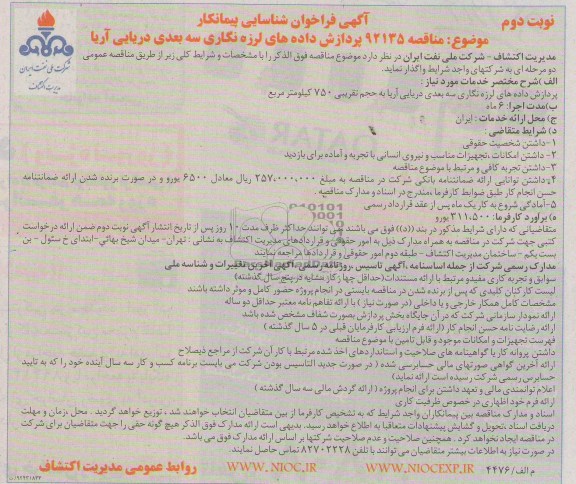 نوبت دوم
آگهی فراخوان شناسایی پیمانکار
موضوع: مناقصه ۹۲۱۳۵ پردازش داده های لرزه نگاری سه بعدی دریایی آریا
شرکت ملی نفت ایران
مدیریت اکتشاف
مدیریت اکتشاف - شرکت ملی نفت ایران در نظر دارد موضوع مناقصه فوق الذکر را با مشخصات و شرایط کلی زیر از طریق مناقصه عمومی
دو مرحله ای به شرکتهای واجد شرایط واگذار نماید.
الف) شرح مختصر خدمات مورد نیاز :
پردازش داده های لرزه نگاری سه بعدی دریایی آریا به حجم تقریبی ۷۵۰ کیلومتر مربع
ب) مدت اجرا: ۶ ماه
ج) محل ارائه خدمات : ایران
د) شرایط متقاضی :
۱-داشتن شخصیت حقوقی
۲- داشتن امکانات ،تجهیزات مناسب و نیروی انسانی با تجربه و آماده برای بازدید
۳-داشتن تجربه کافی و مرتبط با موضوع مناقصه
۴-داشتن توانایی ارائه ضمانتنامه بانکی شرکت در مناقصه به مبلغ ۲۵۷،۰۰۰،۰۰۰ ریال معادل ۶۵۰۰ یورو و در صورت برنده شدن ارائه ضمانتنامه
حسن انجام کار طبق ضوابط کارفرما ،مندرج در اسناد و مدارک مناقصه .
۵-آمادگی شروع به کار یک ماه پس از عقد قرارداد رسمی
ه) برآورد کارفرما: ۳۱۱،۵۰۰ یورو
متقاضیانی که دارای شرایط مذکور در بند ((د)) فوق می باشند می توانند حداکثر ظرف مدت ۱۰ روز پس از تاریخ انتشار آگهی نوبت دوم ضمن ارائه درخواست
کتبی جهت شرکت در مناقصه به همراه مدارک ذیل به امور حقوقی و قراردادهای مدیریت اکتشاف به نشانی : تهران- میدان شیخ بهائی -ابتدای خ سئول - بن
بست یکم - ساختمان مدیریت اکتشاف - طبقه دوم امور حقوقی و قراردادها مراجعه نمایند
مدارک رسمی شرکت از جمله اساسنامه ،آگهی تاسیس ،روزنامه رسمی ،آگهی آخرین تغییرات و شناسه ملی
سوابق و تجربه کاری مفید و مرتبط با ارائه مستندات(حداقل چهار کار مشابه در پنج سال گذشته)
لیست کارکنان کلیدی که پس از برنده شدن در مناقصه بایستی در انجام پروژه حضور کامل و موثر داشته باشند
مشخصات کامل همکار خارجی و یا داخلی (در صورت نیاز ) با ارائه تفاهم نامه معتبر حداقل دو ساله
ارائه نمودار سازمانی شرکت که در آن جایگاه بخش پردازش بصورت شفاف مشخص شده باشد
ارائه رضایت نامه حسن انجام کار (ارائه فرم ارزیابی کارفرمایان قبلی در ۵ سال گذشته )
فهرست تجهیزات و امکانات موجود و قابل تامین با موضوع مناقصه
داشتن پروانه کار یا گواهینامه های صلاحیت و استانداردهای اخذ شده مرتبط با کار آن شرکت از مراجع ذیصلاح
ارائه آخرین گواهی صورتهای مالی حسابرسی شده ( در صورت جدید التاسیس بودن شرکت می بایست برنامه کسب و کار سه سال آینده خود را که به تایید
حسابرس رسمی شرکت رسیده است ارائه نماید)
اعلام توانمندی مالی و تعهد داشتن برای انجام پروژه ( ارائه گردش مالی سه سال گذشته)
ارائه فرم خود اظهاری در خصوص ظرفیت کاری
اسناد و مدارک مناقصه بین پیمانکاران واجد شرایط که به تشخیص کارفرما از بین متقاضیان انتخاب خواهند شد ، توزیع خواهد گردید . محل ،زمان و مهلت
دریافت اسناد ،تحویل و گشایش پیشنهادات متعاقبا به اطلاع خواهد رسید. بدیهی است ارائه مدارک فوق الذکر هیچ گونه حقی را جهت متقاضیان برای شرکت
در مناقصه ایجاد نخواهد کرد . همچنین صلاحیت و عدم صلاحیت شرکتها بر اساس ارائه مدارک فوق می باشد.
در صورت نیاز به اطلاعات بیشتر متقاضیان می توانند با تلفن ۸۲۷۰۲۲۲۸ تماس حاصل نمایند.
م الف/ ۴۴۷۶
WWW.NIOCEXP.IR
WWW.NIOC.IR
روابط عمومی مدیریت اکتشاف